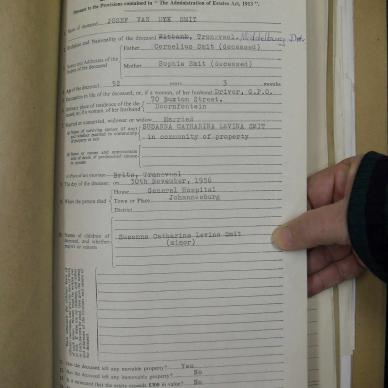 Pursuant to the Provisions contained in "The Administration of Estates Act, 1913"
JOSEF VAN DYK SMIT
and Nationality of the deceased Witbank, Transvaal,
Names and Addresses of the Father Cornelius Smit (deceased)
parents of the deceased
Mother Sophie Smit (deceased)
Age of the deceased 52 years 3 months
in life of the deceased, or, if a woman, of her husband Driver, G.P.O.
place of residence of the de- 70 Buxton Street,
ceased, or, if a woman, of her husband Doornfontein
Married or unmarried, widower or widow Married
(a) Name of surviving spouse (if any) SUSANNA CATHARINA LEVINA SMIT
and whether married in community of in community of property
property or not
(b) Name or names and approximate
date of death of predeceased spouse
or spouses
(c) Place of last marriage Brits, Transvaal
The day of the decease: on 30th November, 1956
House General Hospital
Where the person died Town or Place Johannesburg
District
Names of children of Susanna Catharina Levina Smit
deceased, and whether (minor)
majors or minors
the deceased left any movable property? Yes
the deceased left any immovable property? No
Is it estimated that the estate exceeds £300 in value? No